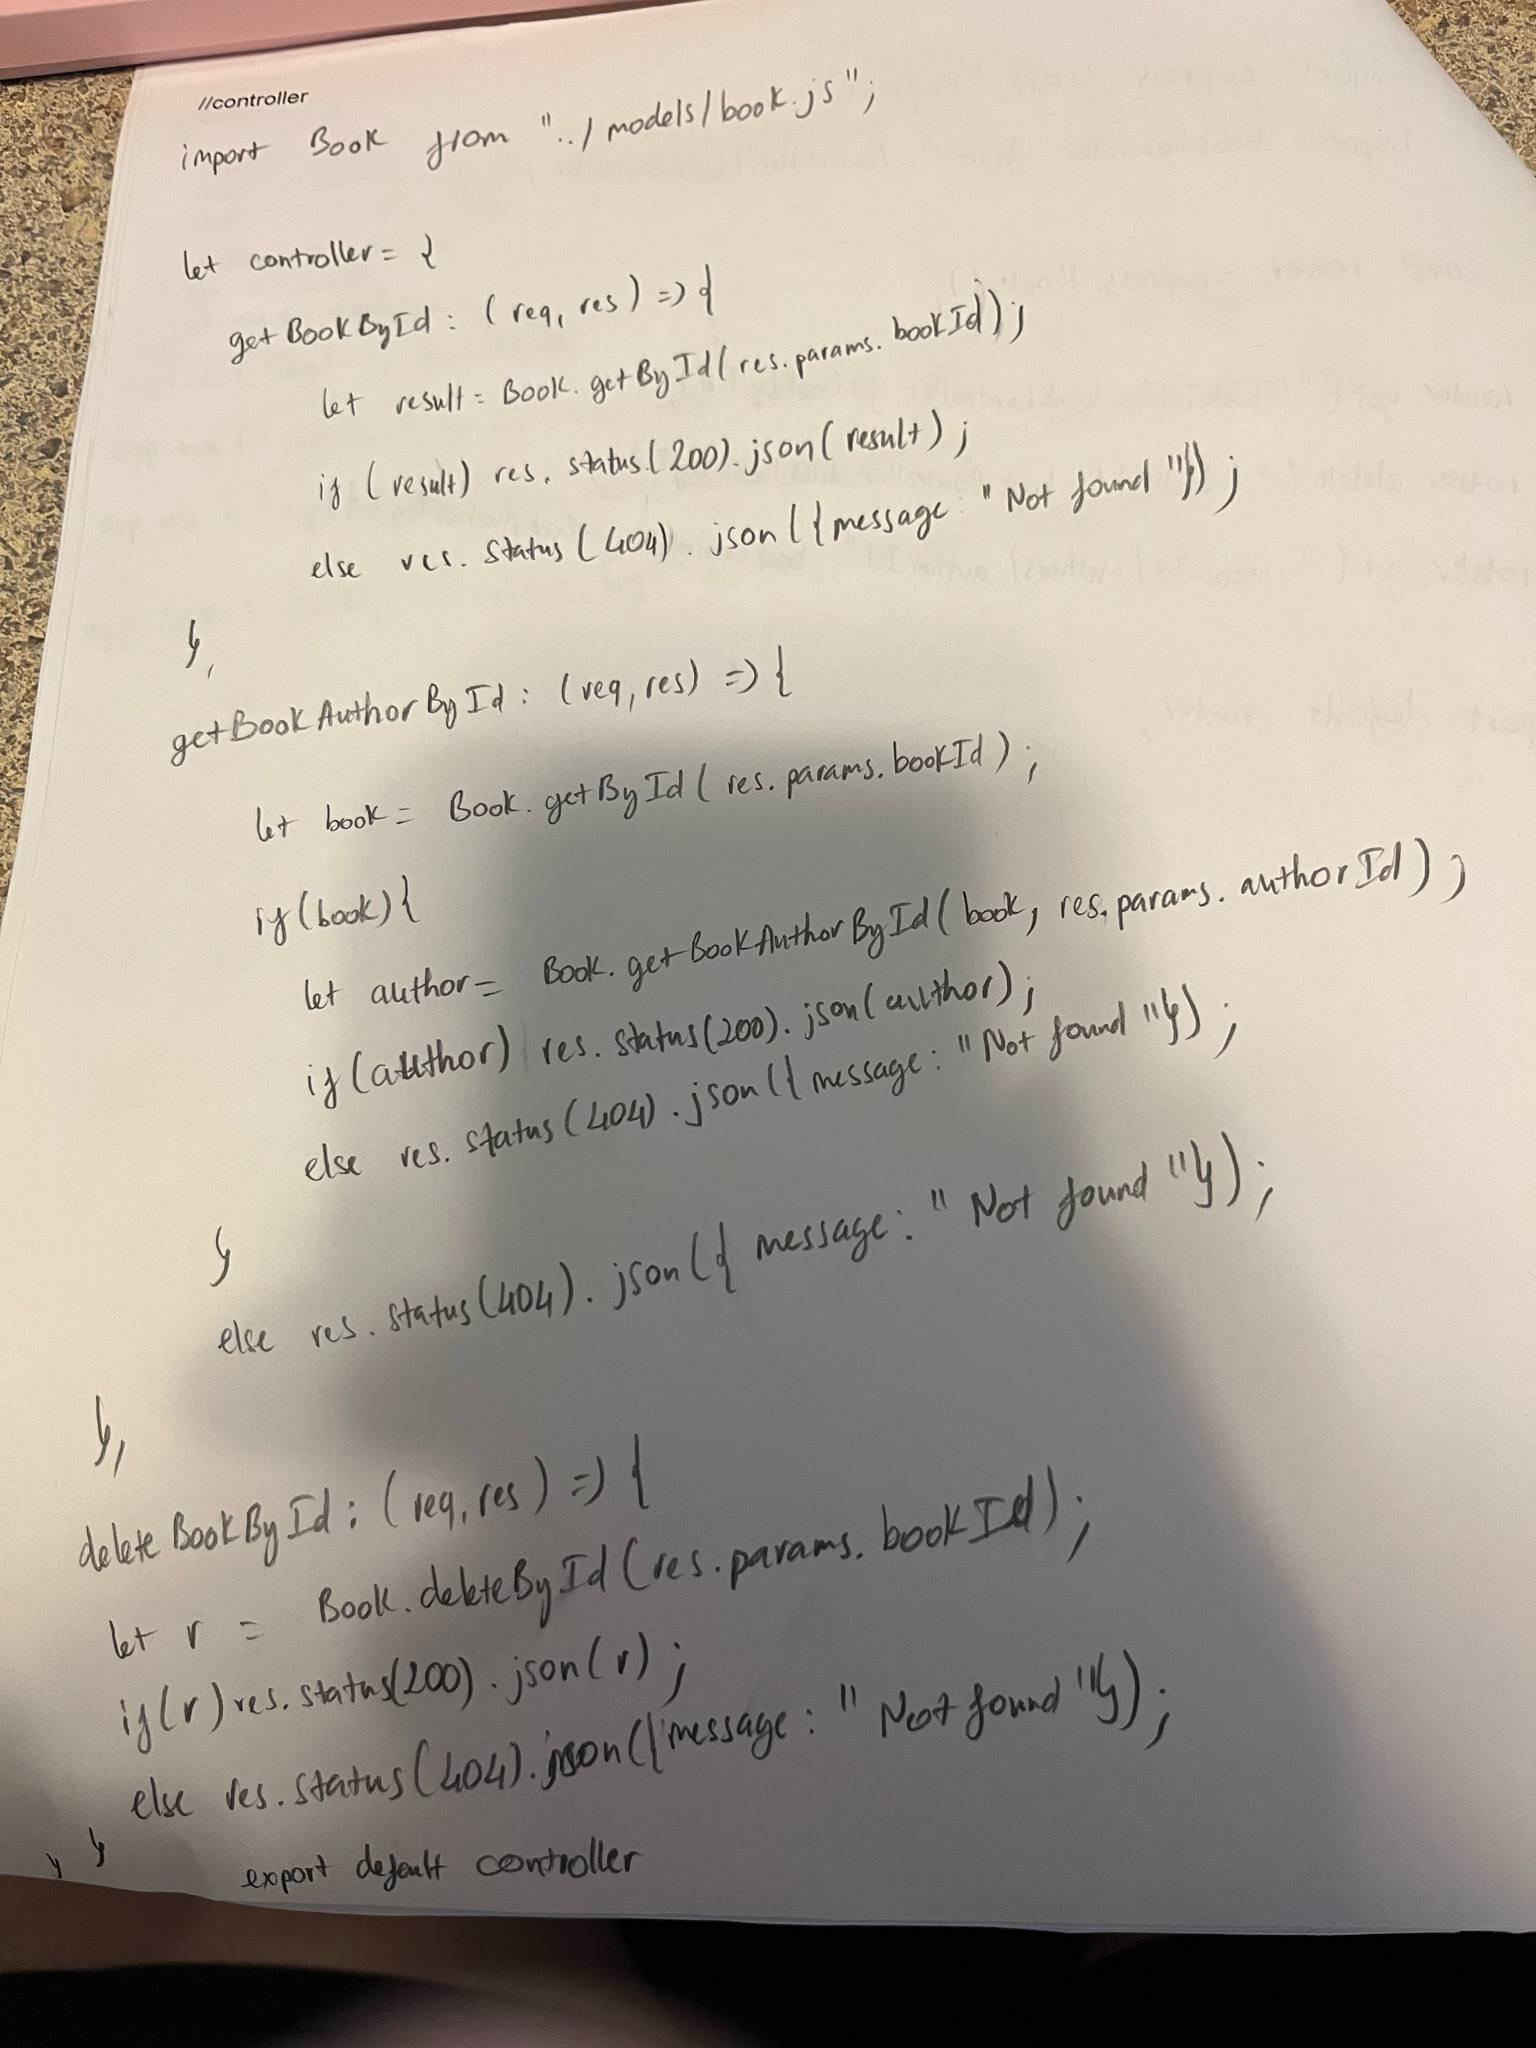 //controller
import Book from "../models/book.js";
let controller = {
getBookById : (req, res) => {
let result = Book.getById(res.params.bookId);
if (result) res.status(200).json(result);
else res.status(404).json({message : "Not found"});
},
getBookAuthorById : (req, res) => {
let book = Book.getById(res.params.bookId);
if(book){
let author = Book.getBookAuthorById(book, res.params.authorId);
if(author) res.status(200).json(author);
else res.status(404).json({message: "Not found"});
}
else res.status(404).json({message: "Not found"});
},
deleteBookById : (req, res) => {
let r = Book.deleteById(res.params.bookId);
if(r) res.status(200).json(r);
else res.status(404).json({message: "Not found"});
} }
export default controller